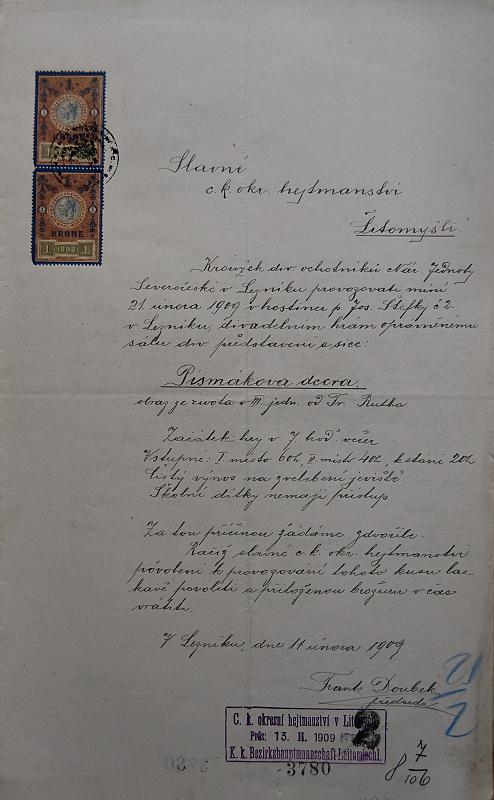 1
KRONE
1 1898 1
Slavné
c. k. okr. hejtmanství
Litomyšli
Kroužek div. ochotníků Nár. Jednoty
Severočeské v Lezníku provozovati míní
21 února 1909 v hostinci p. Jos. Štefky č 2
v Lezníku, divadelním hrám oprávněnému
sálu div představení a sice:
Písmákova dcera,
obraz ze života v III. jedn. od Fr. Rutha.
Začátek hry v 7. hod. večer
Vstupné: I místo 60h, II. místo 40h, k stání 20h
Čistý výnos na zvelebení jeviště
Školní dítky nemají přístup.
Za tou příčinou žádáme zdvořile.
Račiž slavné c. k. okr. hejtmanství
povolení k provozování tohoto kusu las-
kavě povoliti a přiloženou brožuru v čas
vrátiti.
V Lezníku, dne 11 února 1909
Frant. Doubek
předseda
21/2
C. k. okresní hejtmanství v
Präs: 13. II. 1909
2
K. k. Bezirkshauptmannschaft Leitomischl.
3780
8 7/106